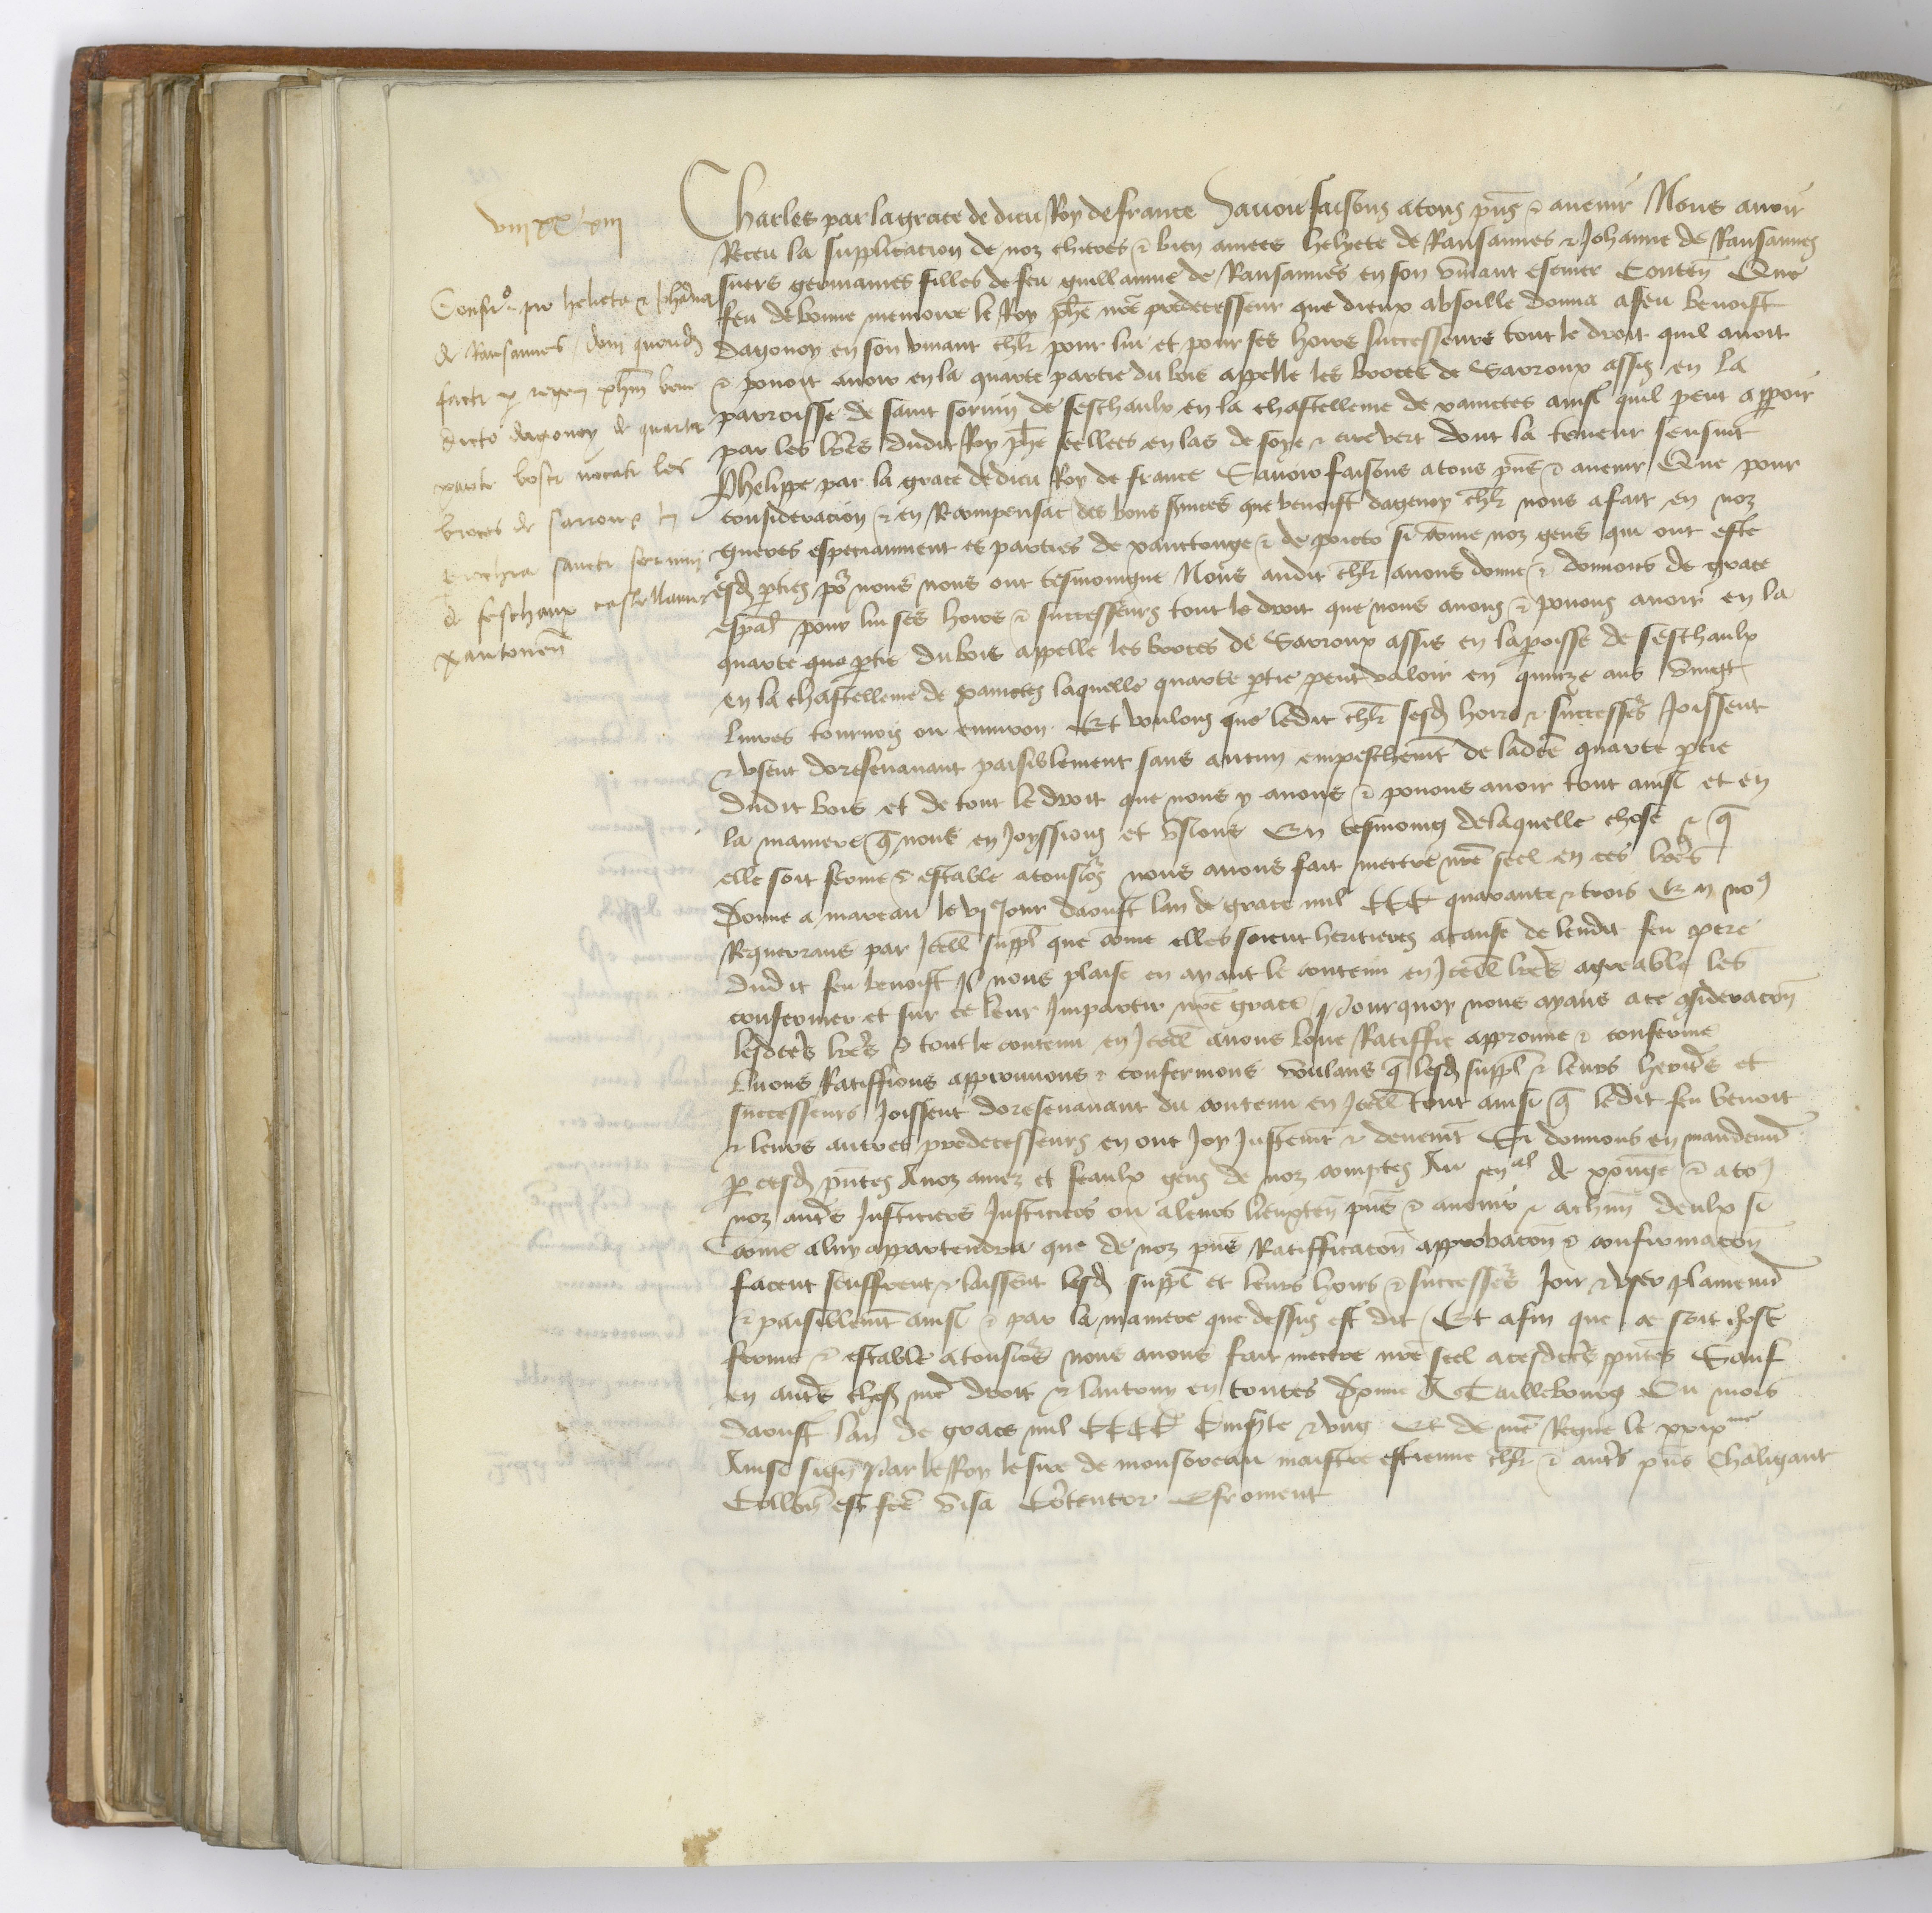 viij xx xiij
Confir° pro helieta & Johanna
de Ransannes / doni quond
facti p regem phm bene
dicto dagoney de quarta
parte bosci vocati les
broces de sarroux in
prochia sancti sornini
de seschaux castellanie
xantonen
Charles par la grace de dieu Roy de france Sauoir faisons a tous pns & auenir Nous auoir
Receu la supplicacion de noz chieres & bien amees helyete de Ransannes & Johanne de Ransannes
suers germaines filles de feu guillaume de Ransannes en son viuant escuier Conten Que
feu de bonne memoire le Roy phe nre predecesseur que dieux absoille donna a feu benoist
dagonoy en son viuant chlr pour lui et pour ses hoirs successeurs tout le droit quil auoit
& pouoit auoir en la quarte partie du bois appelle les broces de Sarroux assis en la
parroisse de saint sornin de seschaulx en la chastellenie de xainctes ainsi quil peut apparoir
par les lres dudit Roy phe seellees en las de soye & cire vert dont la teneur sensuit
Phelippe par la grace de dieu Roy de france Sauoir faisons a tous pns & auenir Que pour
consideracion & en Recompensac des bons seruices que benoist dagenoy chlr nous a fait en noz
guerres especiaument es parties de xanctonge & de poicto si come noz gens qui ont este
esd pties por nous nous ont tesmoingne Nous audit chlr auons donne & donnons de grace
espal pour lui ses hoirs & successeurs tout le droit que nous auons & pouons auoir en la
quarte que ptie du bois appelle les broces de Sarroux assis en la poisse de seschaulx
en la chastellenie de xainctes laquelle quarte ptie peut valoir en quinze ans vingt
liures tournois ou enuiron Et voulons que ledit chlr sesd hoirs & successrs Joissent
& vsent doresenauant paisiblement sans aucun empeschemt de ladte quarte ptie
dudit bois et de tout le droit que nous y auons & pouons auoir tout ainsi et en
la maniere q nous en Joyssions et vsions En tesmoing de laquelle chose & q
elle soit ferme & estable a tousiors nous auons fait mectre nre seel en ces lres
Donne a mareau le vj Jour daoust lan de grace mil CCC quarante & trois En no9
Requerans par Icell suppl que come elles soient heritieres a cause de leurdit feu pere
dudit feu benoist Il nous plaise en ayant le contenu en Icell lres agreable les
confermer et sur ce leur Impartir nre grace / Pourquoy nous ayans a ce gsideracon
lesdctes lres & tout le contenu en Icell auons loue Ratiffie approuue & conferme
louons Ratiffions approuuons & confermons voulans q lesd suppl & leurs herits et
successeurs Joissent doresenauant du contenu en Icell tout ainsi q ledit feu benoit
& leurs autres predecesseurs en ont Joy Justemt & deuemt Si donnons en mandemt
p cesd pntes A noz amez et feaulx gens de noz comptes Au senal de xonge & a to9
noz autrs Justiciers Justiciers ou a leurs lieuxten pns & auenir & a chun deulx si
come a luy appartendra que de noz pns Ratifficacon approbacon & confirmacon
facent seuffrent & laissent lesd suppl et leurs hoirs & successrs Joir & vser plainemt
& paisiblemt ainsi & par la maniere que dessus est dit / Et afin que ce soit chose
ferme & estable a tousiors nous auons fait mectre nre seel a cesdctes pntes Sauf
en autrs choses nre droit & lautruy en toutes Donne A Taillebourg Ou mois
daoust lan de grace mil CCCC Cinqte & vng Et de nre Regne le xxixme
Ainsi signe Par le Roy le sire de monsoreau maistre estienne chlr & autrs pns Chaligant
Collon est fce visa Contentor E froment